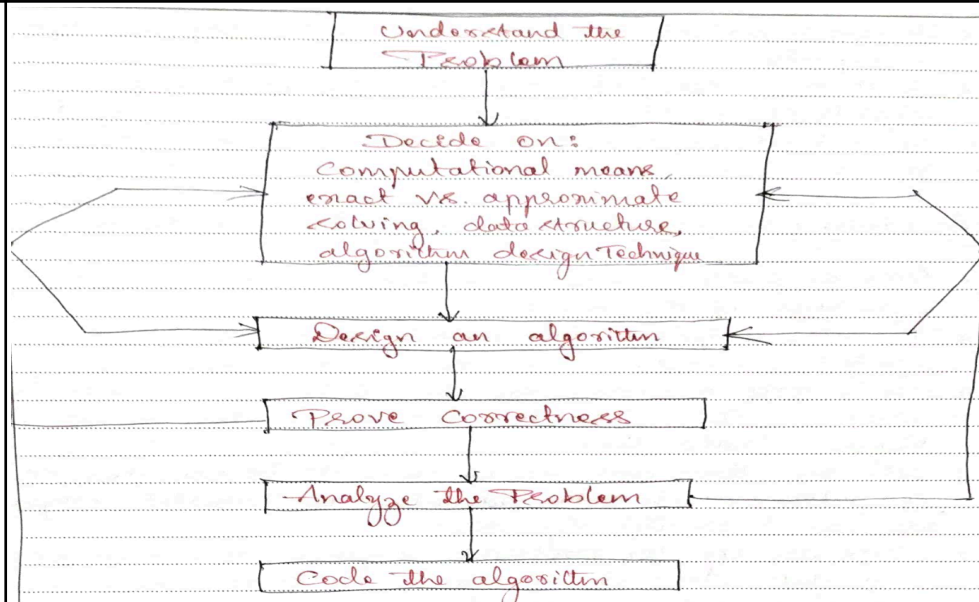 Understand the
Problem
Decide on:
Computational means,
exact vs. approximate
solving, data structure,
algorithm design Technique
Design an algorithm
Prove Correctness
Analyze the Problem
Code the algorithm